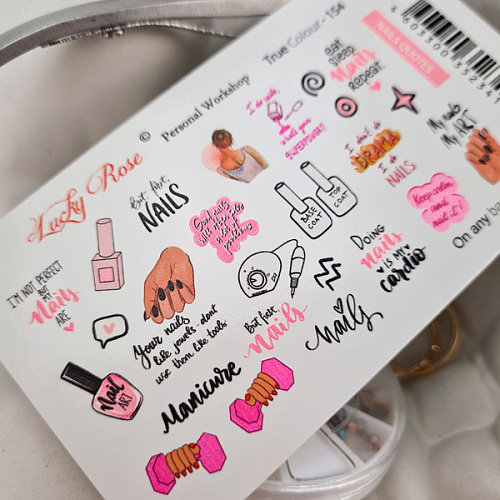 Lucky Rose
© Personal Workshop
True Colour - 154
4 603300 35234
NAILS QUOTES
Eat
Sleep
Nails
Repeat.
I do nails,
what's your
SUPERPOWER?
But first,
NAILS
I don't do
DRAMA
I do
NAILS
My nails
My ART
Keep calm
and
nail it!
BASE
COAT
TOP
COAT
I'M NOT PERFECT
BUT MY
nails
ARE
DOING
nails
IS MY
cardio
On any
Your nails
like jewels-dont
use them like tools
But first,
nails
Nails
Nail
ART
Manicure